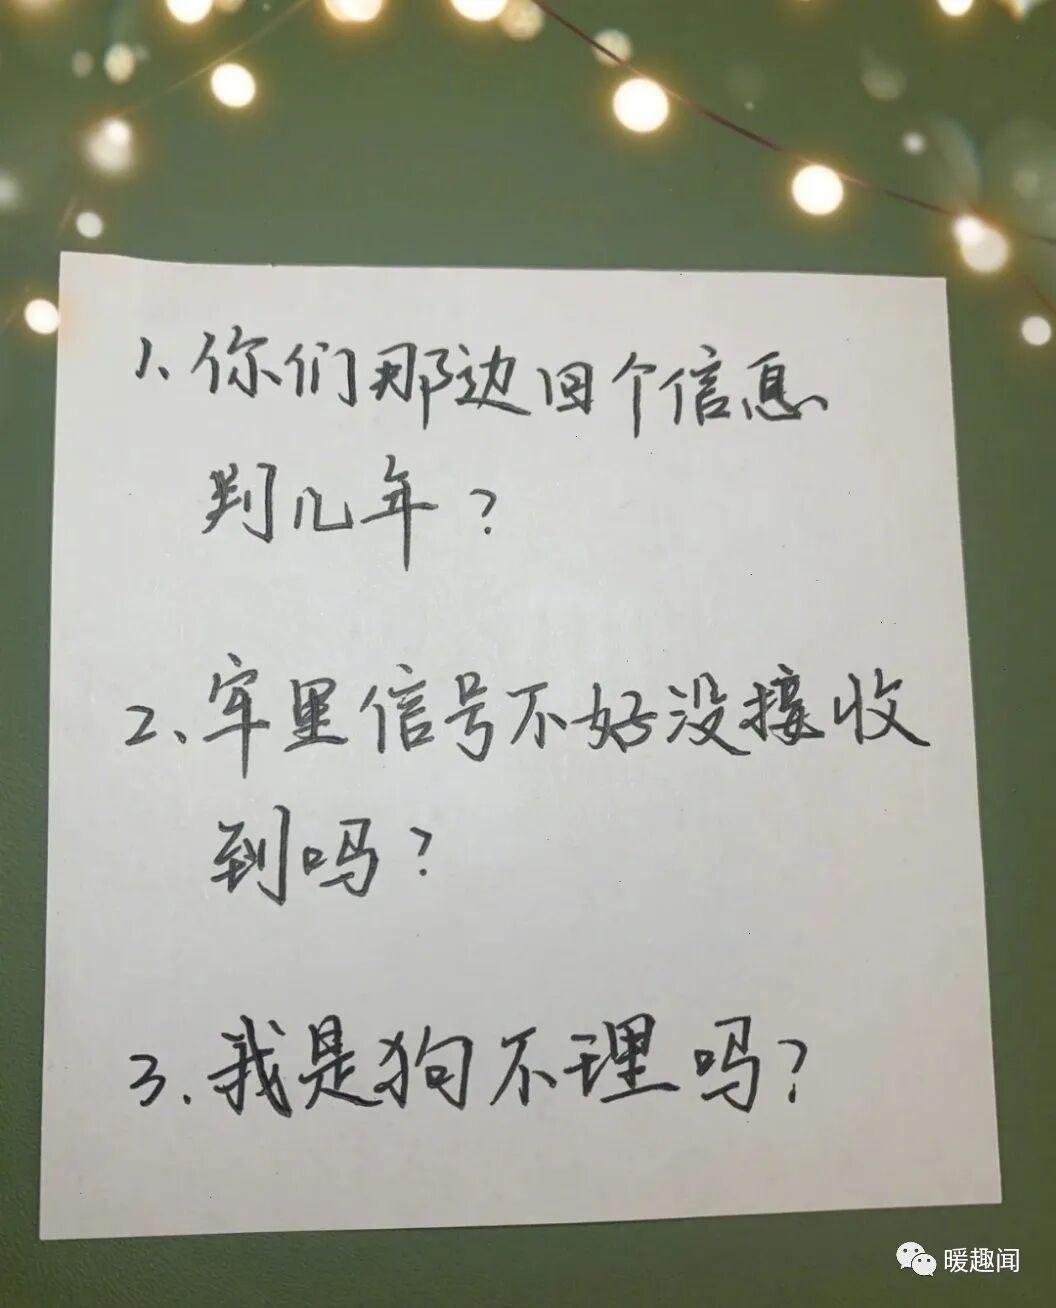 1、你们那边回个信息
判几年？
2、牢里信号不好没接收
到吗？
3.我是狗不理吗？
暖趣闻